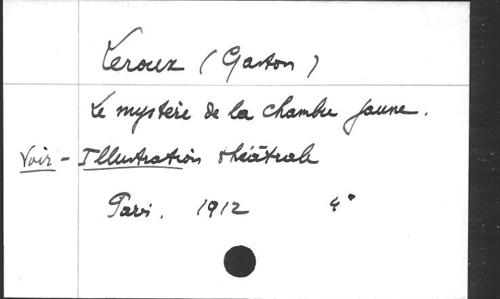 Leroux (Gaston)
Le mystère de la chambre jaune.
Voir - Illustration théâtrale
Paris. 1912 4°